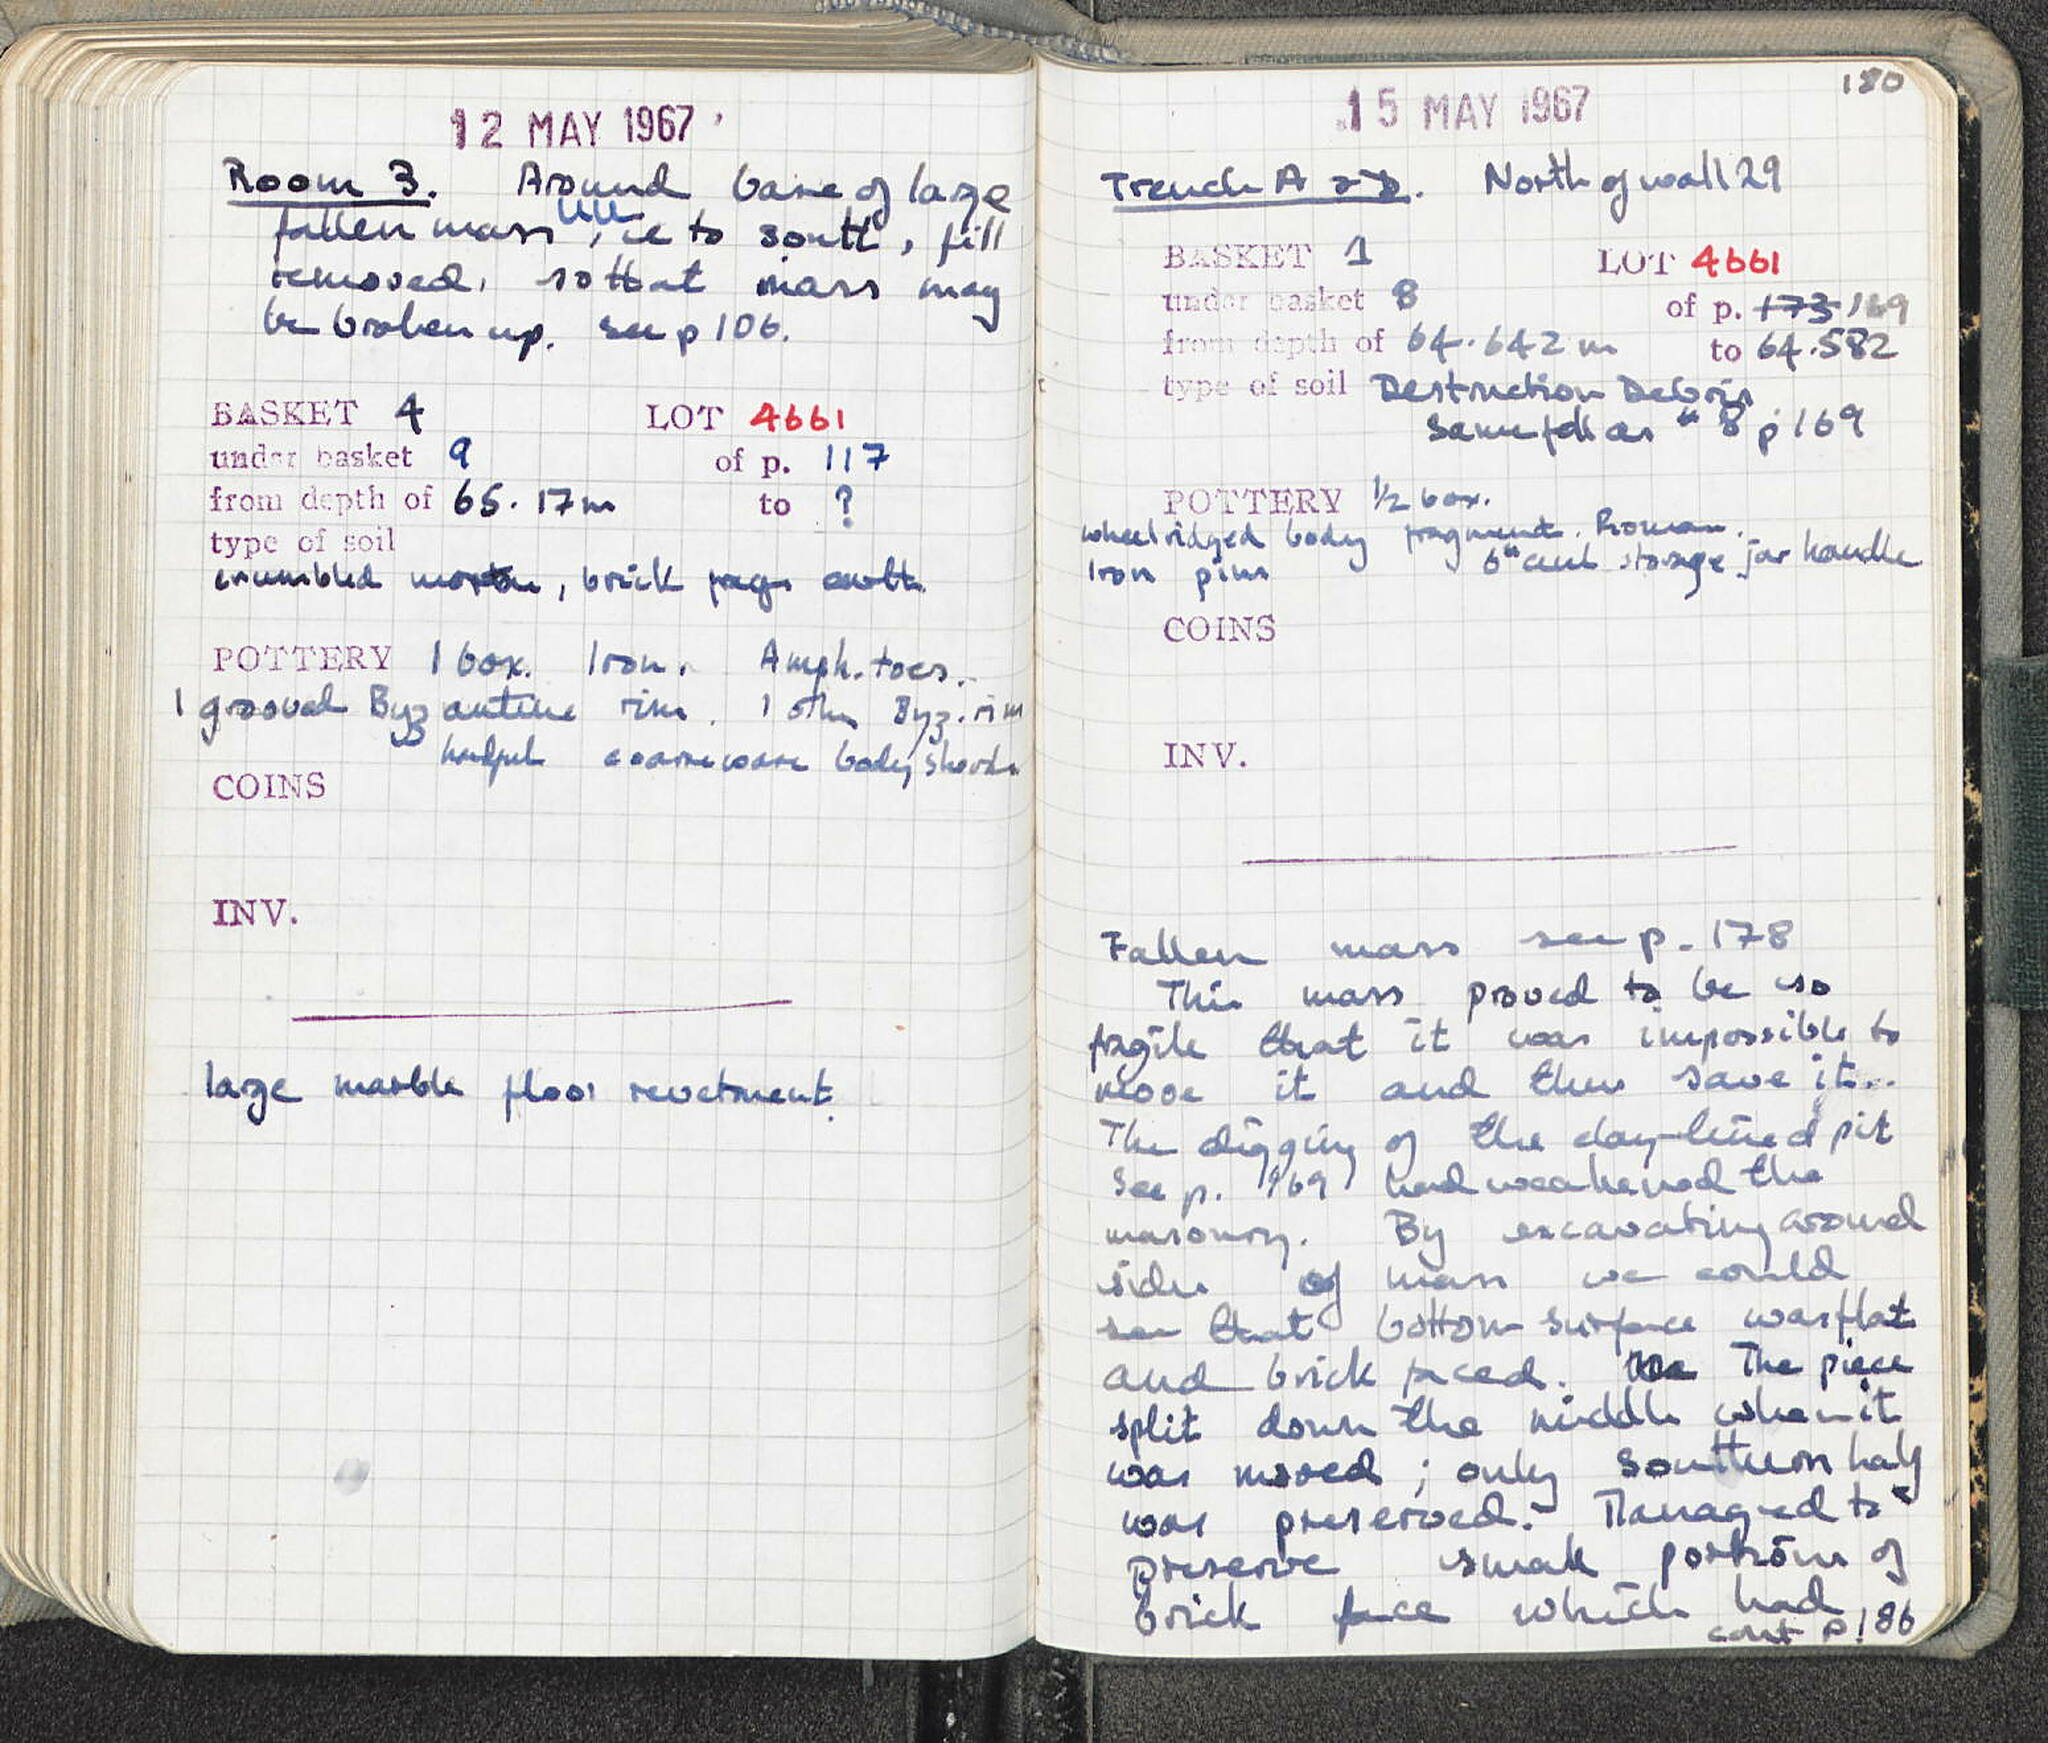 12 MAY 1967
Room 3. Around base of large
fallen mass UU, ie to south, fill
removed, so that mass may
be broken up. see p 106.
BASKET 4 LOT 4661
under basket 9 of p. 117
from depth of 65.17m to ?
type of soil
crumbled mortar, brick frags earth.
POTTERY 1 box. Iron. Amph. toes.
1 grooved Byzantine rim. 1 other Byz. rim
handful coarse ware body sherds
COINS
INV.
large marble floor revetment.
180
15 MAY 1967
Trench A North of wall 29
BASKET 1 LOT 4661
under basket 8 of p. 173 169
from depth of 64.642 m to 64.582
type of soil Destruction Debris
Same fill as # 8 p 169
POTTERY 1/2 box.
wheelridged body fragment. Roman.
Iron pins 6th cent storage jar handle
COINS
INV.
Fallen mass see p. 178
This mass proved to be so
fragile that it was impossible to
move it and thus save it..
The digging of the clay-lined pit
see p. 169 had weakened the
masonry. By excavating around
sides of mass we could
see that bottom surface was flat
and brick faced. The piece
split down the middle when it
was moved; only southern half
was preserved. Managed to
preserve small portions of
brick face which had
cont p 186